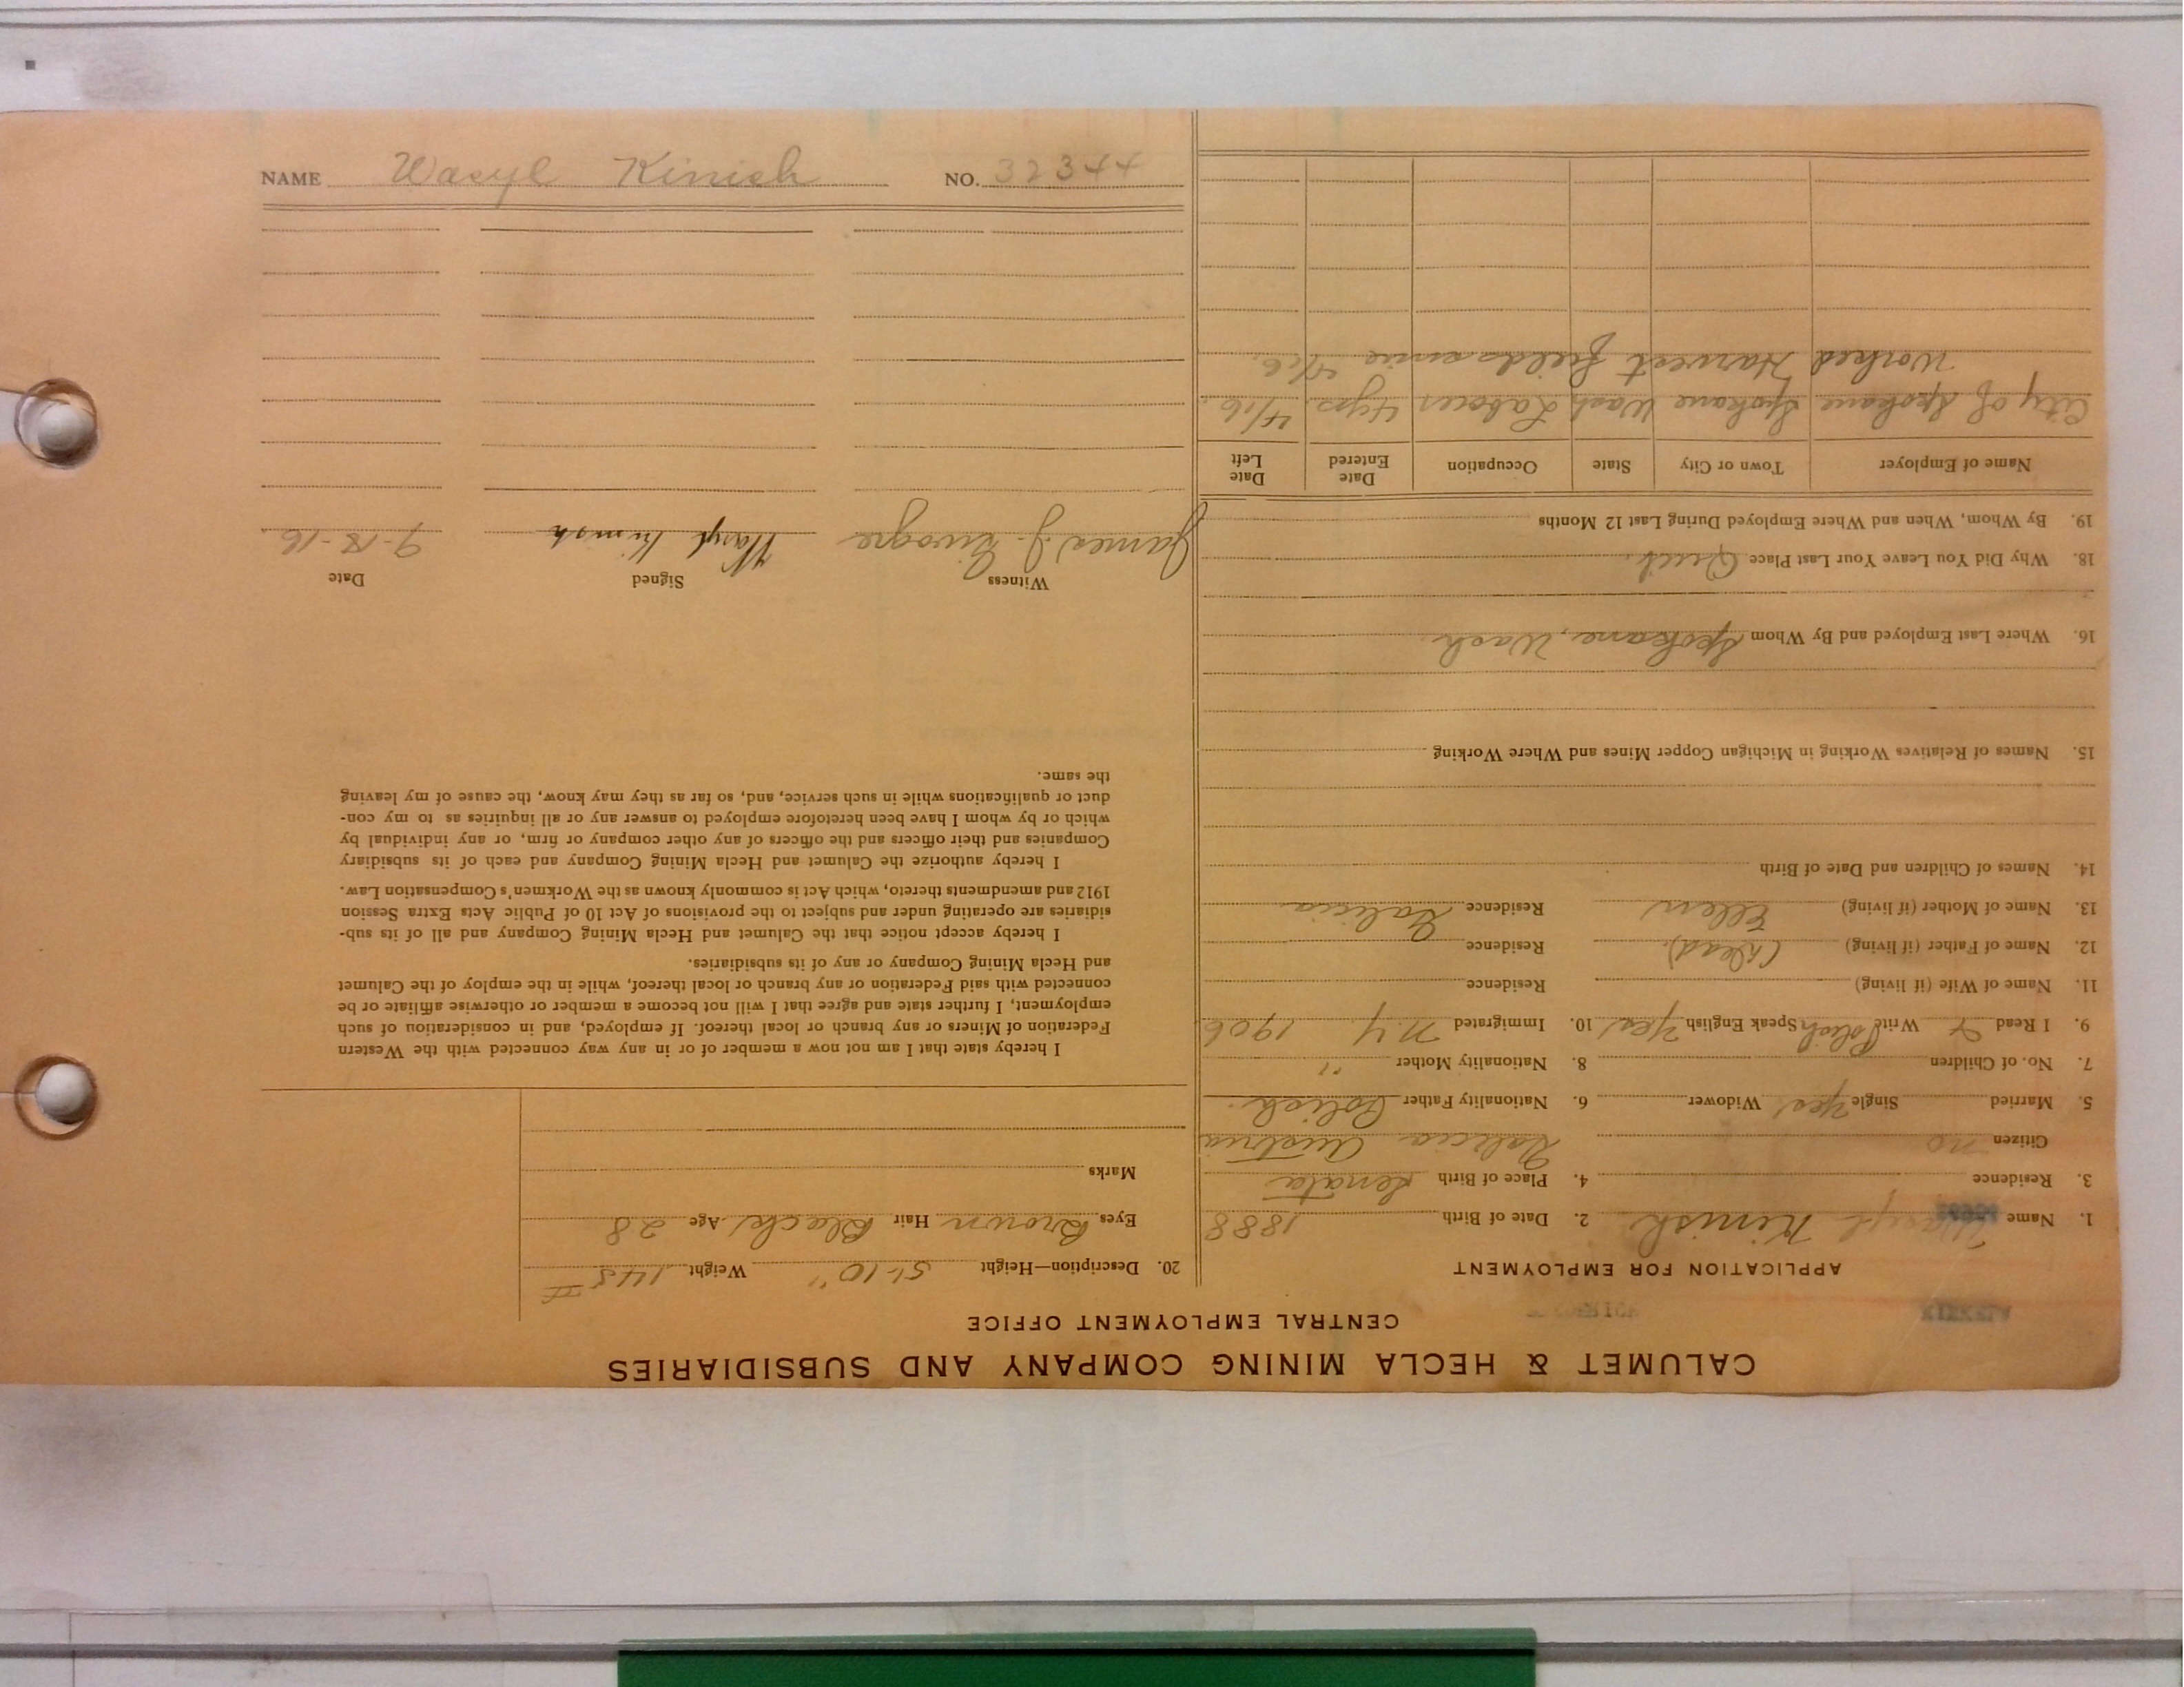 CALUMET & HECLA MINING COMPANY AND SUBSIDIARIES
CENTRAL EMPLOYMENT OFFICE
APPLICATION FOR EMPLOYMENT
1. Name Wasyl Kinish 2. Date of Birth 1888
3. Residence 4. Place of Birth Senata
Citizen no Galecia Austria
5. Married Single Yes Widower 6. Nationality Father Polish.
7. No. of Children 8. Nationality Mother "
9. I Read & Write Polish Speak English Yes 10. Immigrated N.Y. 1906
11. Name of Wife (if living) Residence
12. Name of Father (if living) (Dead) Residence
13. Name of Mother (if living) Ellen Residence Galicia
14. Names of Children and Date of Birth
15. Names of Relatives Working in Michigan Copper Mines and Where Working
16. Where Last Employed and By Whom Spokane, Wash.
18. Why Did You Leave Your Last Place Quit.
19. By Whom, When and Where Employed During Last 12 Months
Name of Employer Town or City State Occupation Date Entered Date Left
City of Spokane Spokane Wash Laborer 4 yrs. 4/16.
Worked Harvest fields since 4/16.
20. Description—Height 5'-10" Weight 145 #
Eyes Brown Hair Black Age 28
Marks
I hereby state that I am not now a member of or in any way connected with the Western
Federation of Miners or any branch or local thereof. If employed, and in consideration of such
employment, I further state and agree that I will not become a member or otherwise affiliate or be
connected with said Federation or any branch or local thereof, while in the employ of the Calumet
and Hecla Mining Company or any of its subsidiaries.
I hereby accept notice that the Calumet and Hecla Mining Company and all of its sub-
sidiaries are operating under and subject to the provisions of Act 10 of Public Acts Extra Session
1912 and amendments thereto, which Act is commonly known as the Workmen's Compensation Law.
I hereby authorize the Calumet and Hecla Mining Company and each of its subsidiary
Companies and their officers and the officers of any other company or firm, or any individual by
which or by whom I have been heretofore employed to answer any or all inquiries as to my con-
duct or qualifications while in such service, and, so far as they may know, the cause of my leaving
the same.
Witness Signed Date
James J. Wasyl Kinish 9-18-16.
NAME Wasyl Kinish NO. 32344